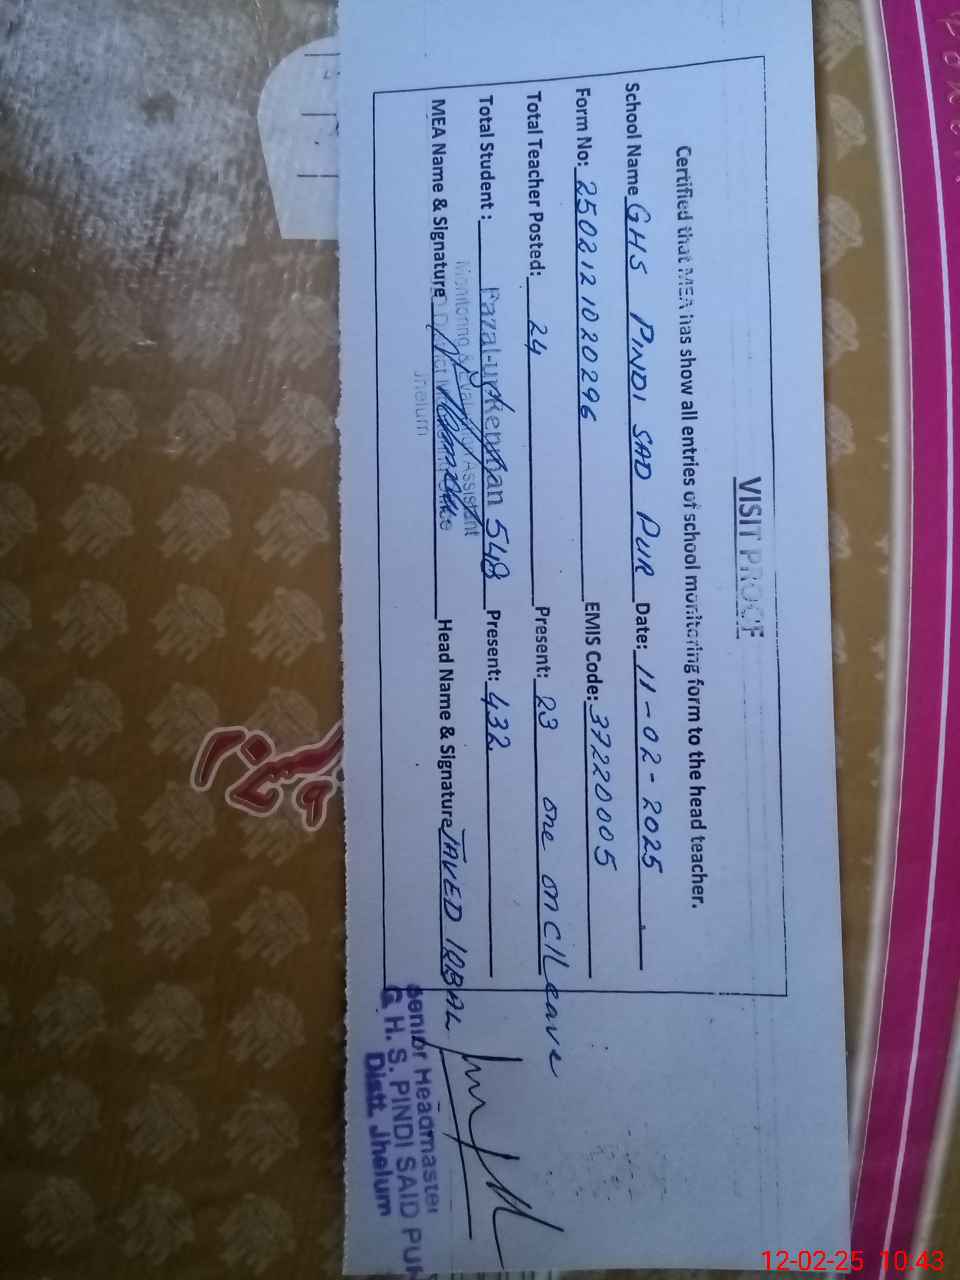 VISIT PROOF
Certified that MEA has show all entries of school monitoring form to the head teacher.
School Name GHS PINDI SAD PUR Date: 11-02-2025
Form No: 2502121020296 EMIS Code: 37220005
Total Teacher Posted: 24 Present: 23 one on C/Leave
Total Student : 548 Present: 432
MEA Name & Signature Head Name & Signature JAVED IQBAL
Fazal-ur-Rehman
Monitoring & Evaluation Assistant
District Monitoring Office
Jhelum
Senior Headmaster
G. H. S. PINDI SAID PUR
Distt. Jhelum
12-02-25 10:43